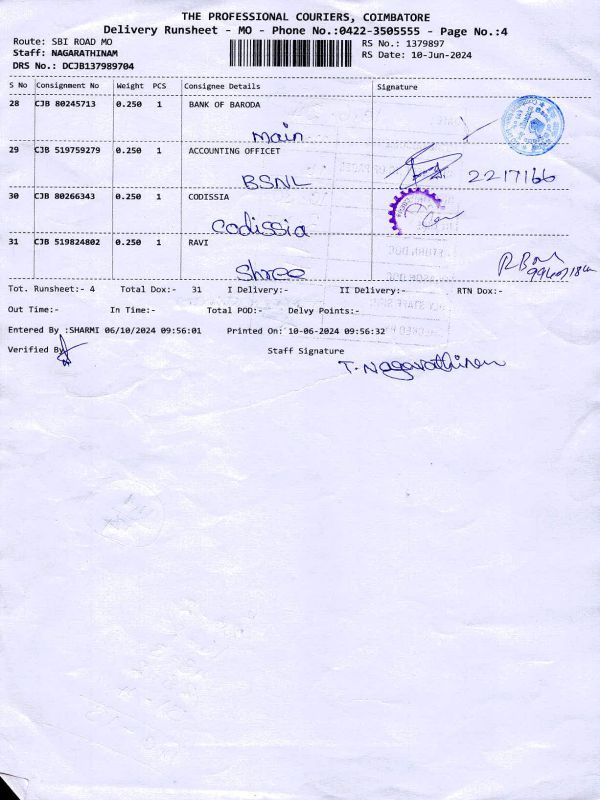 THE PROFESSIONAL COURIERS, COIMBATORE
Delivery Runsheet - MO - Phone No.:0422-3505555 - Page No.:4
Route: SBI ROAD MO RS No.: 1379897
Staff: NAGARATHINAM RS Date: 10-Jun-2024
DRS No.: DCJB137989704
S No Consignment No Weight PCS Consignee Details Signature
28 CJB 80245713 0.250 1 BANK OF BARODA
Main
29 CJB 519759279 0.250 1 ACCOUNTING OFFICET
BSNL 2217166
30 CJB 80266343 0.250 1 CODISSIA
Codissia
31 CJB 519824802 0.250 1 RAVI
Shree
Tot. Runsheet:- 4 Total Dox:- 31 I Delivery:- II Delivery:- RTN Dox:-
Out Time:- In Time:- Total POD:- Delvy Points:-
Entered By :SHARMI 06/10/2024 09:56:01 Printed On: 10-06-2024 09:56:32
Verified By
Staff Signature
T. Nagarathinam